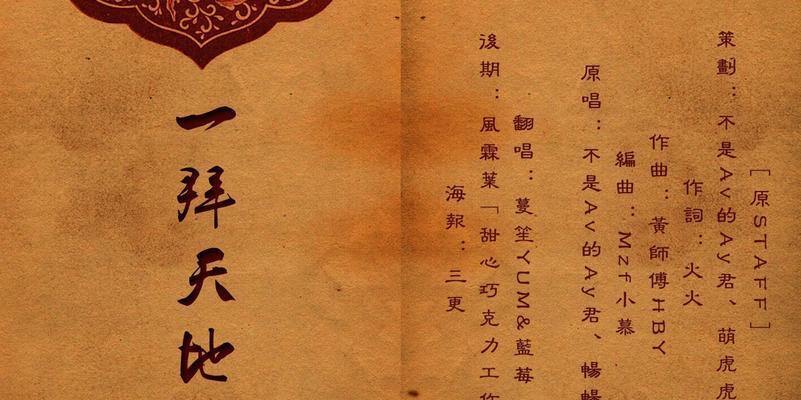 [原STAFF]
策劃：不是Av的Ay君、萌虎虎
作詞：火火
作曲：黃師傅HBY
編曲：Mzf小慕
原唱：不是Av的Ay君、暢
翻唱：蔓笙YUM&藍莓
後期：風霖葉「甜心巧克力工作
海報：三更
一拜天地